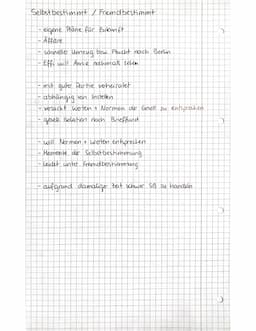 Selbstbestimmt / Fremdbestimmt
- eigene Pläne für Zukunft
- Affäre
- schnelle Umzug bzw. Flucht nach Berlin
- Effi will Annie nochmal sehen
- mit gute Partie verheiratet
- abhängig von Instetten
- versucht Werten + Normen der Gesell. zu entsprechen
- gesell. Isolation nach Brieffund
- will Normen + Werten entsprechen
- Momente der Selbstbestimmung
- leidet unter Fremdbestimmung
- aufgrund damalige Zeit schwer SB zu handeln